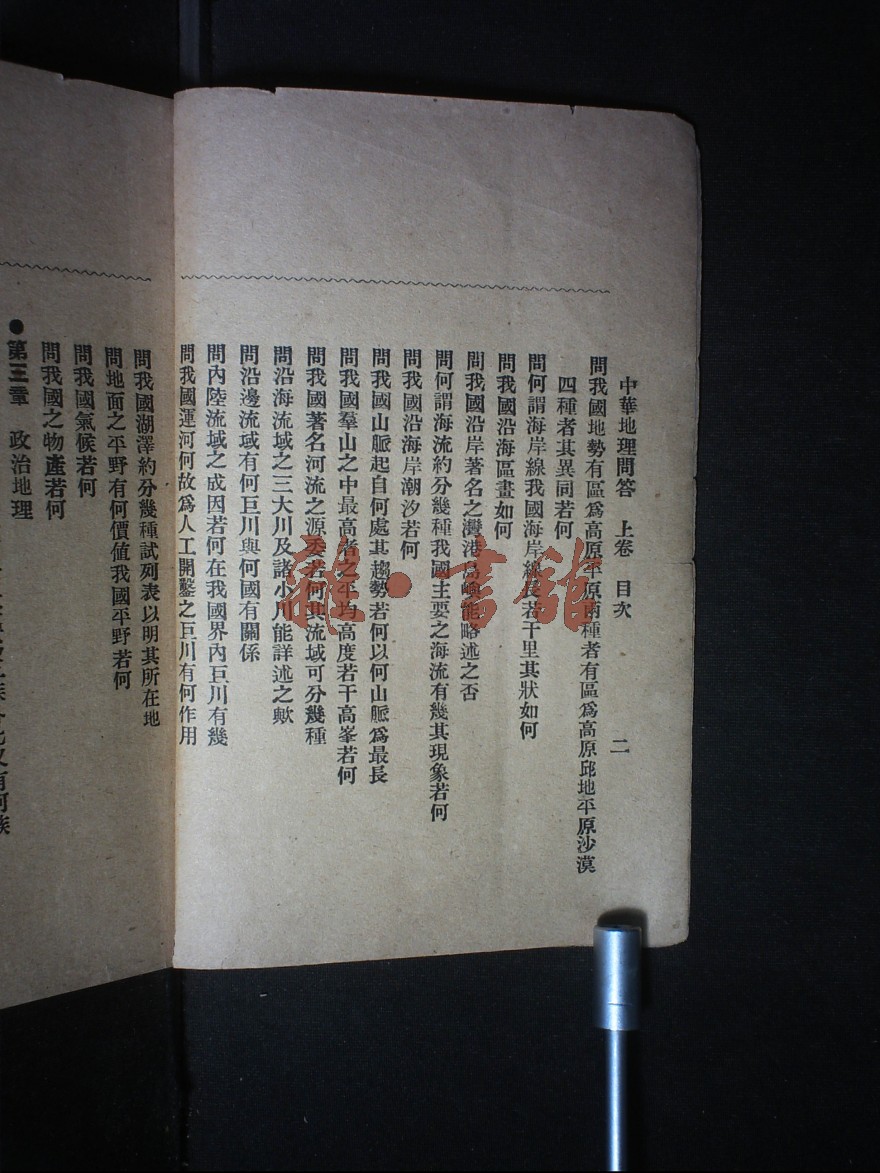 中華地理問答　上卷　目次　二
問我國地勢有區爲高原平原兩種者有區爲高原邱地平原沙漠
四種者其異同若何
問何謂海岸線我國海岸線長若干里其狀如何
問我國沿海區畫如何
問我國沿岸著名之灣港島嶼能略述之否
問何謂海流約分幾種我國主要之海流有幾其現象若何
問我國沿海岸潮汐若何
問我國山脈起自何處其趨勢若何以何山脈爲最長
問我國羣山之中最高者之平均高度若干高峯若何
問我國著名河流之源委若何其流域可分幾種
問沿海流域之三大川及諸小川能詳述之歟
問沿邊流域有何巨川與何國有關係
問內陸流域之成因若何在我國界內巨川有幾
問我國運河何故爲人工開鑿之巨川有何作用
問我國湖澤約分幾種試列表以明其所在地
問地面之平野有何價值我國平野若何
問我國氣候若何
問我國之物產若何
●第三章　政治地理
龍·書館